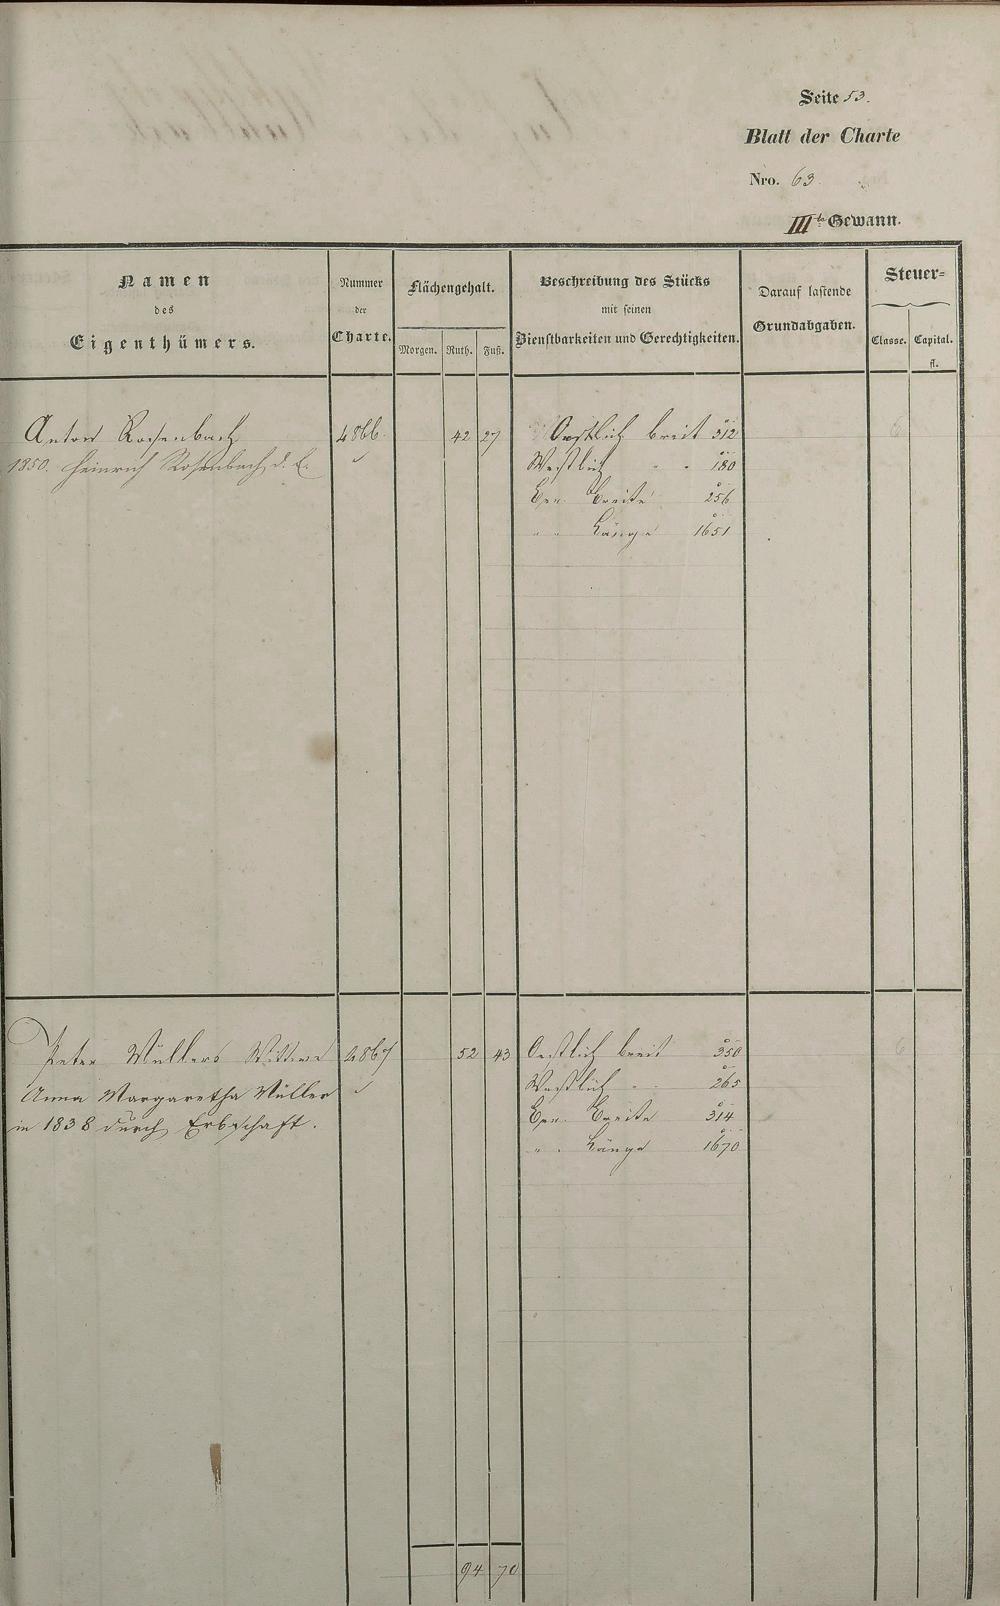 Seite 53.
Blatt der Charte
Nro. 63
III te Gewann.
Namen
des
Eigenthümers.
Nummer
der
Charte.
Flächengehalt.
Morgen. Ruth. Fuß.
Beschreibung des Stücks
mit seinen
Dienstbarkeiten und Gerechtigkeiten.
Darauf lastende
Grundabgaben.
Steuer=
Classe. Capital.
fl.
Anton Rosenbach 4866. 42 27 Oestlich breit 312
1850. Heinrich Rosenbach d. E. Westlich " " 180
Breite 256
" " Länge 1651
6
Peter Müllers Wittwe 4867 52 43 Oestlich breit 350
Anna Margaretha Müller Westlich " " 265
in 1838 durch Erbschaft. Breite 314
" " Länge 1670
6
94 70